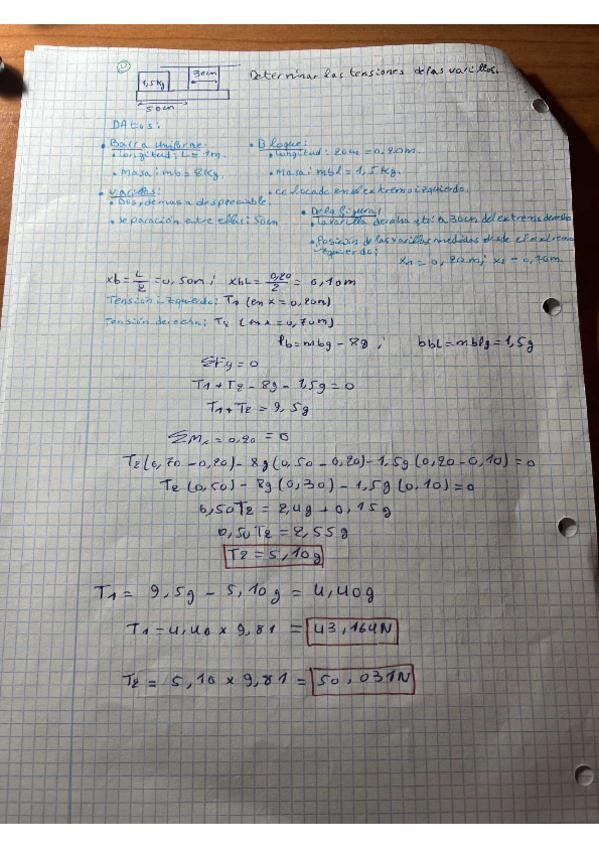 1,5kg
30cm
Determinar las tensiones de las varillas.
50cm
DAtos:
• Barra uniforme:
• Longitud: L = 1m.
• Masa: mb = 8kg.
• Bloque:
• Longitud: 20cm = 0,20m.
• Masa: mbl = 1,5kg.
• colocado en el extremo izquierdo.
• varillas:
• Dos, de masa despreciable.
• separación entre ellas: 50cm
• De la figura:
• La varilla derecha está a 30cm del extremo derecho
• Posición de las varillas medidas desde el extremo
izquierdo:
x1 = 0,20m; x2 = 0,70m.
xb = L/2 = 0,50m; xbL = 0,20/2 = 0,10m
Tensión izquierda: T1 (en x = 0,20m)
Tensión derecha: T2 (en x = 0,70m)
Pb = mbg - 8g; bbL = mblg = 1,5g
ΣFy = 0
T1 + T2 - 8g - 1,5g = 0
T1 + T2 = 9,5g
ΣMx = 0,20 = 0
T2(0,70 - 0,20) - 8g(0,50 - 0,20) - 1,5g(0,20 - 0,10) = 0
T2(0,50) - 8g(0,30) - 1,5g(0,10) = 0
0,50T2 = 2,4g + 0,15g
0,50T2 = 2,55g
T2 = 5,10g
T1 = 9,5g - 5,10g = 4,40g
T1 = 4,40 x 9,81 = 43,164N
T2 = 5,10 x 9,81 = 50,031N